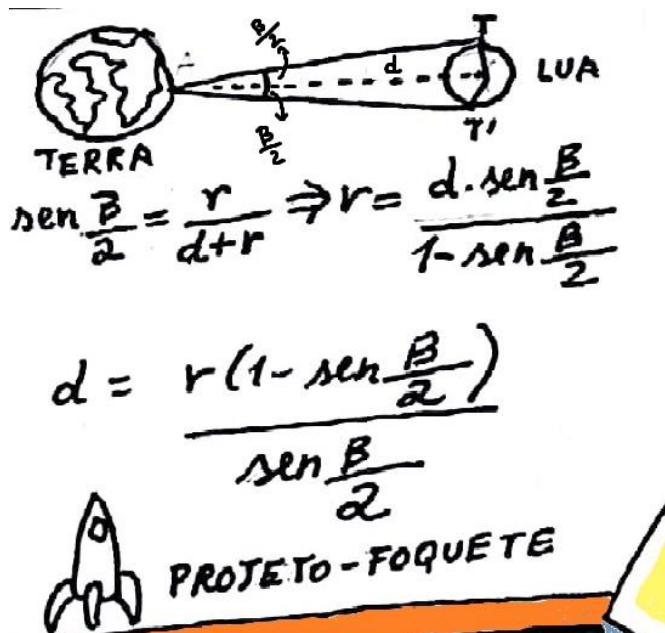 β/2
T
d
LUA
β/2
T'
TERRA
sen β/2 = r/(d+r) ⇒ r = (d.sen β/2)/(1-sen β/2)
d = r(1-sen β/2)/(sen β/2)
PROJETO-FOQUETE